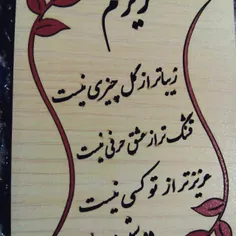 عزیزم
زیباتر از گل چیزی نیست
قشنگ تر از عشق حرفی نیست
عزیزتر از تو کسی نیست